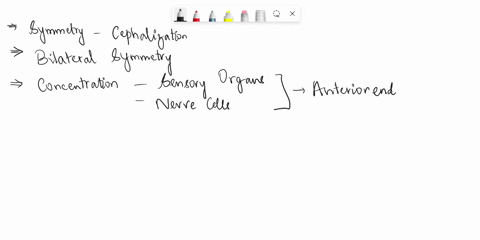 → Symmetry - Cephalization
⇒ Bilateral Symmetry
⇒ Concentration - Sensory Organs
- Nerve Cells
→ Anterior end